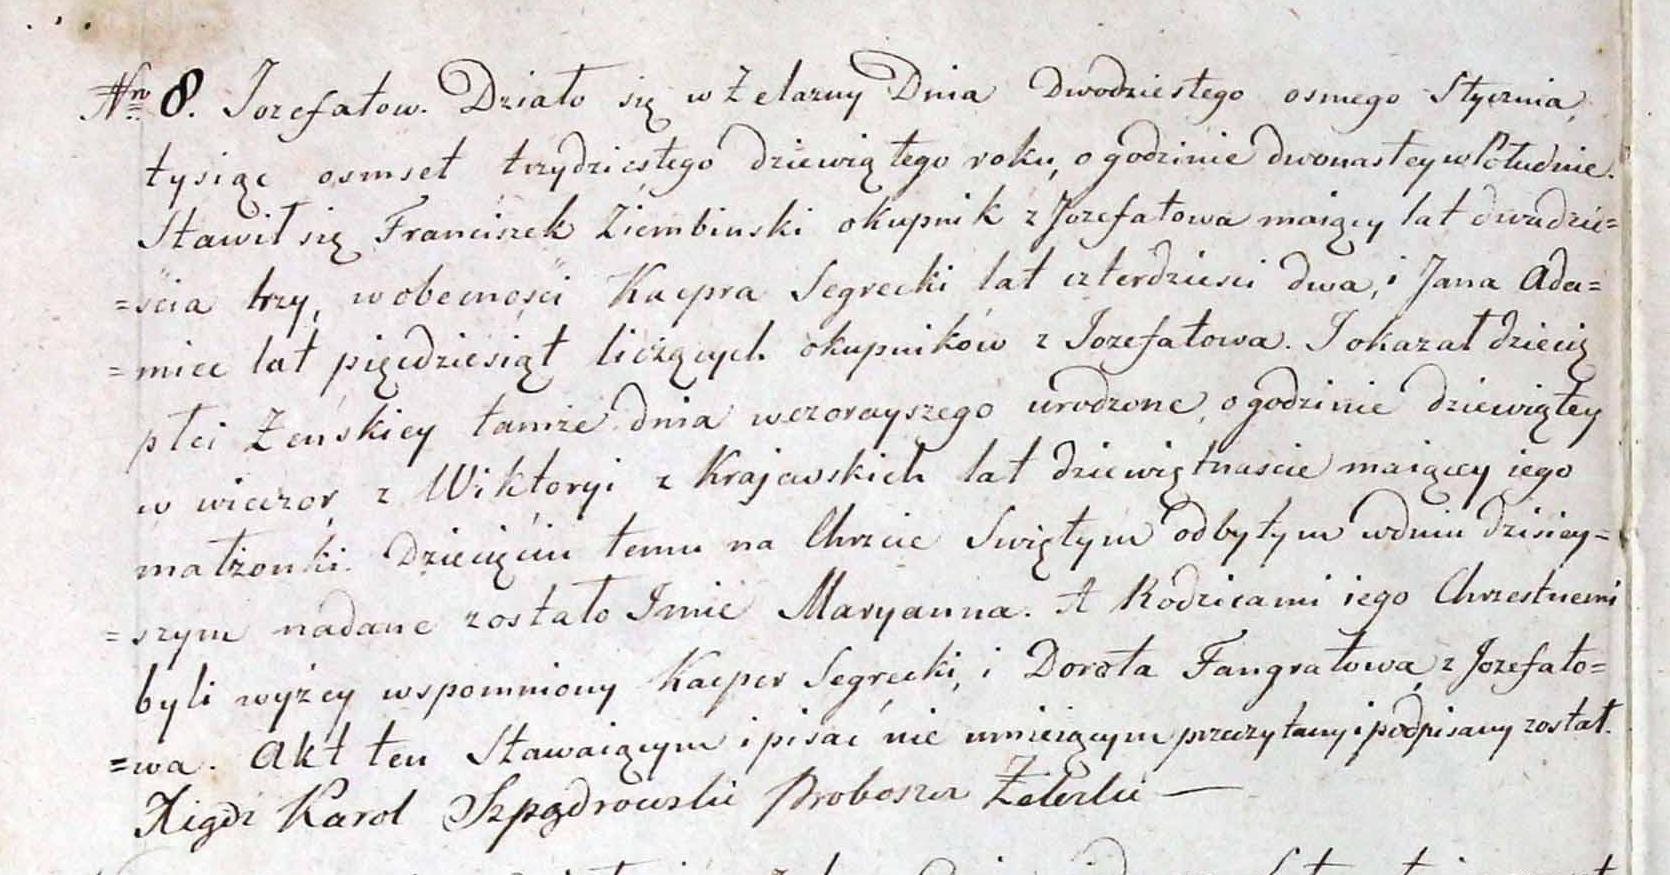 Nro 8. Jozefatow. Działo się w Żelazny Dnia Dwodziestego osmego Stycznia,
tysiąc osmset trzydziestego dziewiątego roku, o godzinie dwonastey w Południe.
Stawił się Franciszek Ziembinski okupnik z Jozefatowa maiący lat dwadzie=
=scia trzy, w obecności Kacpra Segrecki lat czterdziesci dwa, i Jana Ada=
=miec lat pięcdziesiąt liczących okupników z Jozefatowa. I okazał dziecię
płci Żeńskiey tamże dnia wczorayszego urodzone, o godzinie dziewiątey
w wieczor, z Wiktoryi z Krajewskich lat dziewiętnascie maiącey iego
małżonki. Dziecięciu temu na Chrzcie Swiętym odbytym w dniu dzisiey=
=szym nadane zostało Imie Maryanna. A Rodzicami iego Chrzestnemi
byli wyżey wspomniony Kacper Segrecki, i Dorota Fangratowa, z Jozefato=
=wa. Akt ten Stawaiącym i pisać nie umieiącym przeczytany i podpisany został.
Xiądz Karol Szpądrowski Proboszcz Żelezki —